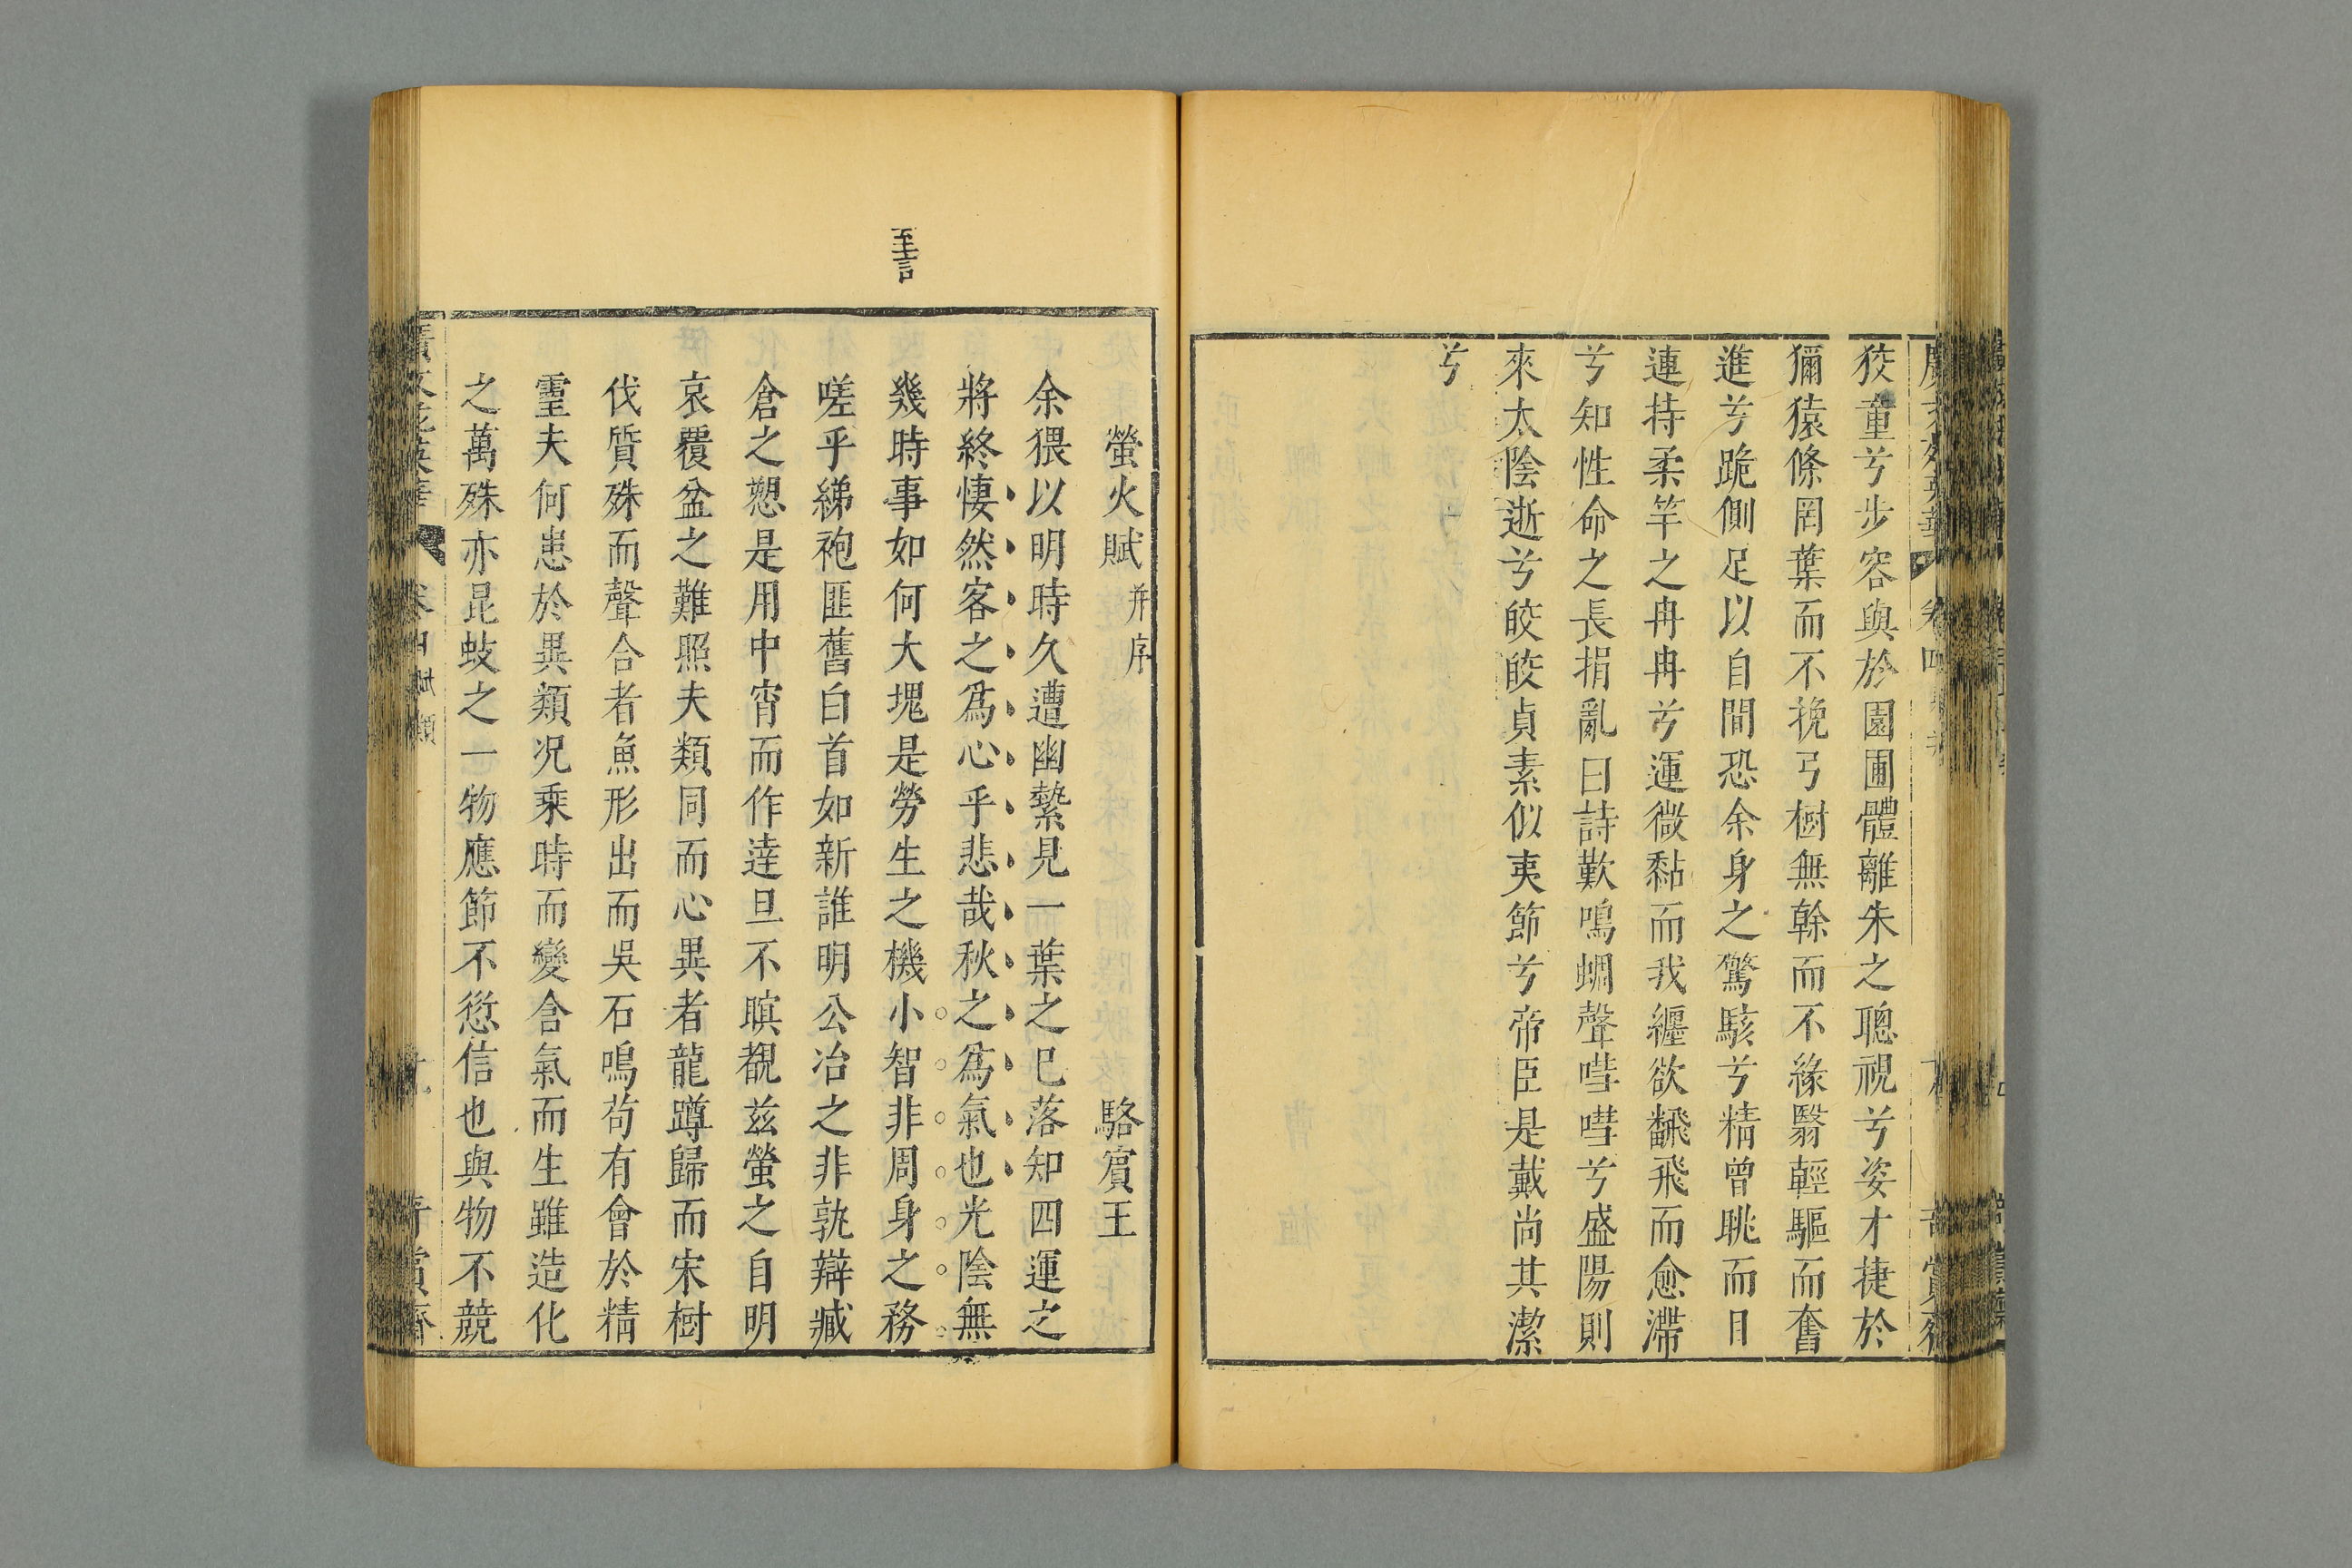 狡童兮步容與於園圃體離朱之聰視兮姿才捷於
獼猿條罔葉而不挽弓樹無幹而不緣翳輕驅而奮
進兮跪側足以自間恐余身之驚駭兮精曾眺而日
連持柔竿之冉冉兮運微黏而我纏欲飜飛而愈滯
兮知性命之長捐亂曰詩歎鳴蜩聲嘒嘒兮盛陽則
來太陰逝兮皎皎貞素似夷節兮帝臣是戴尚其潔
兮
螢火賦 并序 駱賓王
余猥以明時久遭幽縶見一葉之已落知四運之
將終悽然客之爲心乎悲哉秋之爲氣也光陰無
幾時事如何大塊是勞生之機小智非周身之務
嗟乎綈袍匪舊白首如新誰明公冶之非孰辯臧
倉之愬是用中宵而作達旦不瞑覩茲螢之自明
哀覆盆之難照夫類同而心異者龍蹲歸而宋樹
伐質殊而聲合者魚形出而吳石鳴苟有會於精
靈夫何患於異類况乘時而變含氣而生雖造化
之萬殊亦昆蚑之一物應節不愆信也與物不競
至言
廣文苑英華 卷四 賦類